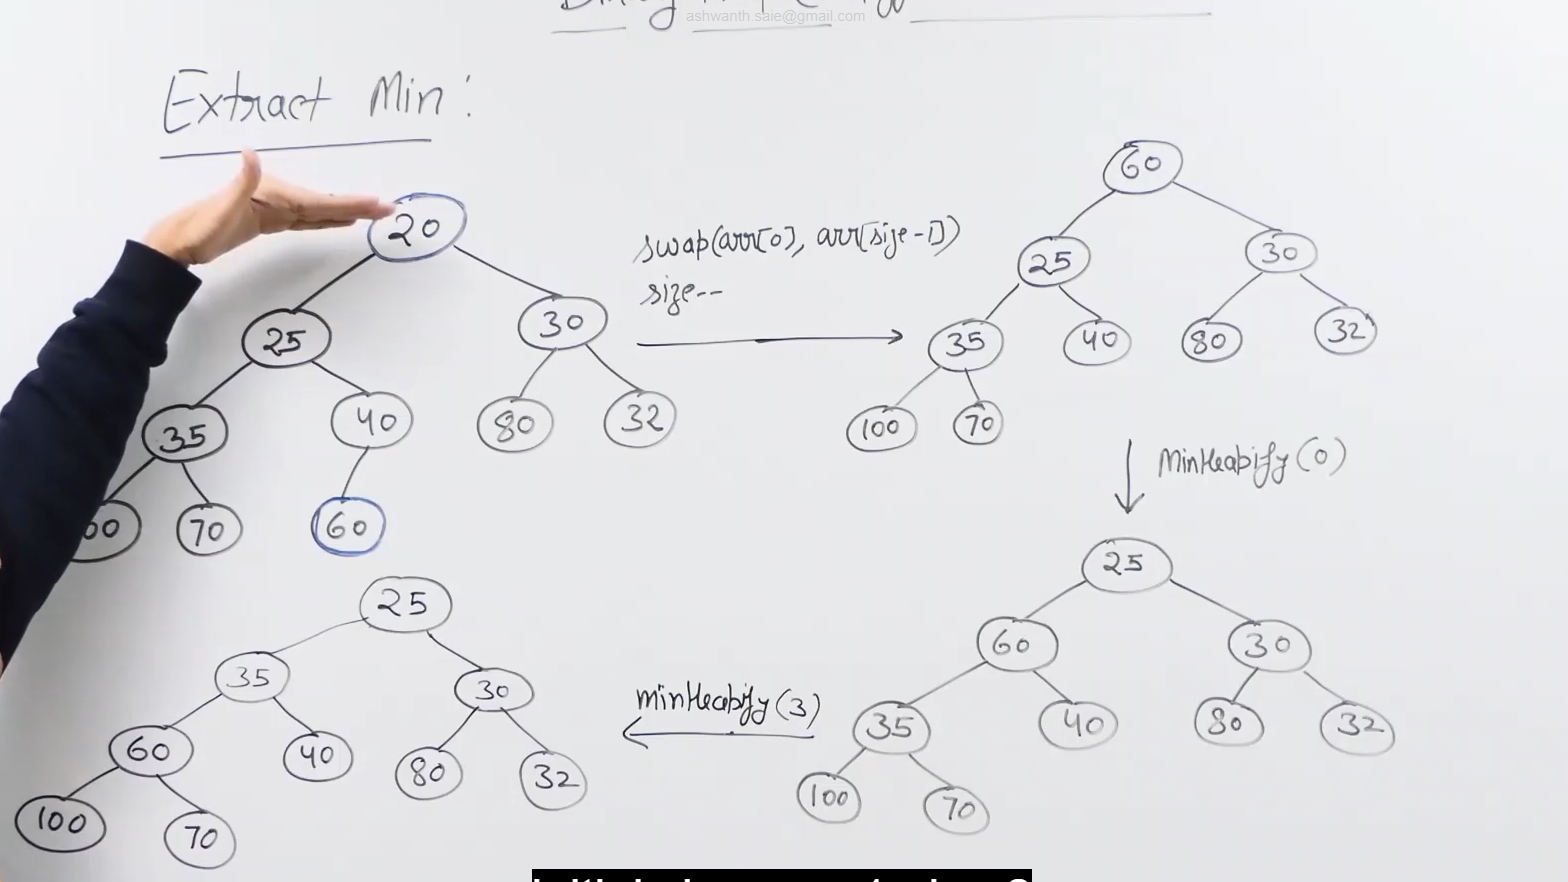 ashwanth.saie@gmail.com
Extract Min:
20
25 30
35 40 80 32
00 70 60
swap(arr[0], arr[size-1])
size--
60
25 30
35 40 80 32
100 70
MinHeapify(0)
25
60 30
35 40 80 32
100 70
minHeapify(3)
25
35 30
60 40 80 32
100 70